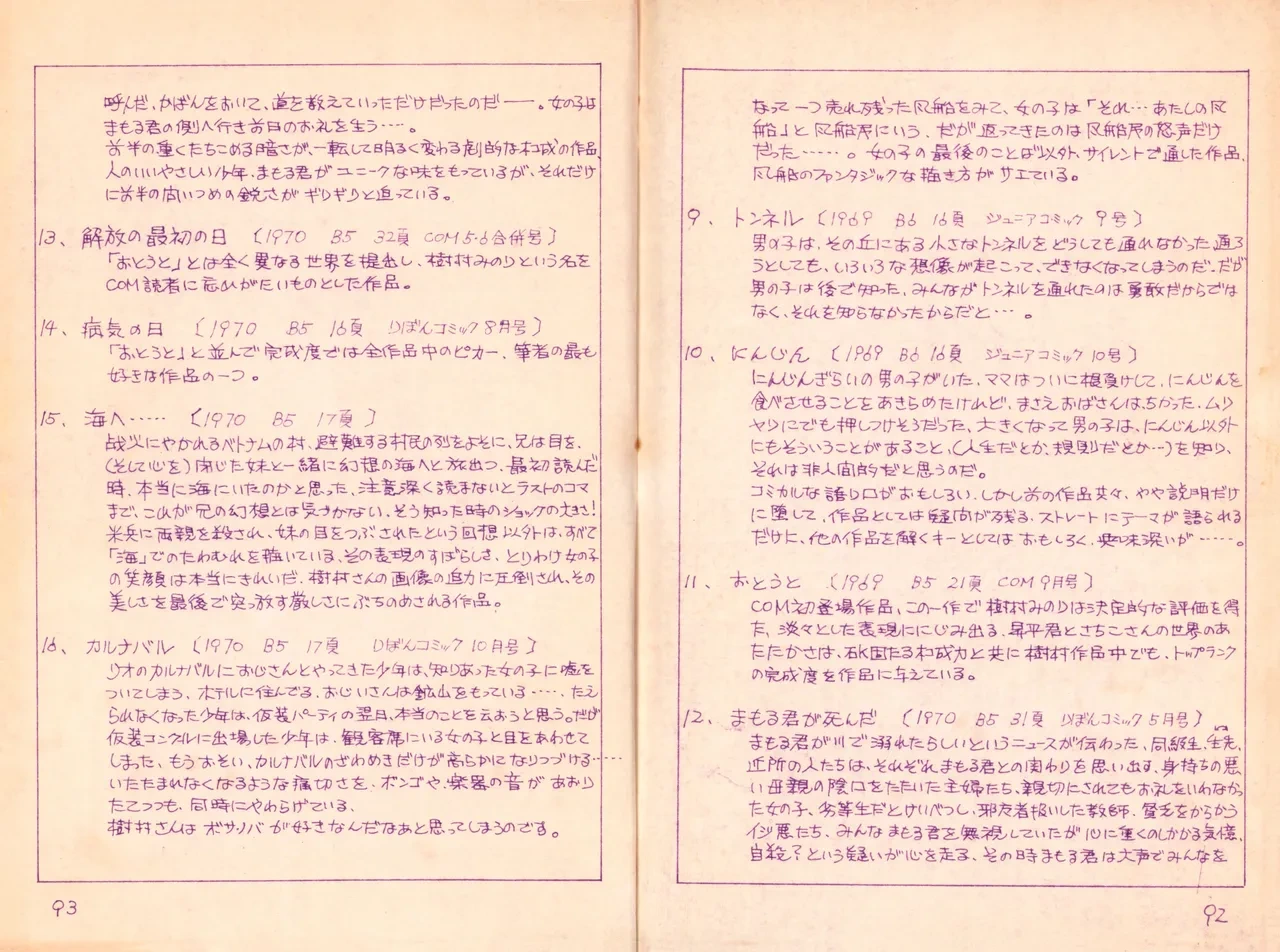 なって一つ売れ残った風船をみて、女の子は「それ…あたしの風
船」と風船屋にいう、だが返ってきたのは風船屋の怒声だけ
だった……。女の子の最後のことば以外、サイレントで通した作品、
風船のファンタジックな描き方がサエている。
9、トンネル 〔1969 B6 16頁 ジュニアコミック 9号〕
男の子は、その丘にある小さなトンネルをどうしても通れなかった、通ろ
うとしても、いろいろな想像が起こって、できなくなってしまうのだ。だが
男の子は後で知った、みんながトンネルを通れたのは勇敢だからでは
なく、それを知らなかったからだと…。
10、にんじん 〔1969 B6 16頁 ジュニアコミック 10号〕
にんじんぎらいの男の子がいた、ママはついに根負けして、にんじんを
食べさせることをあきらめたけれど、まさえおばさんはちがった、ムリ
ヤリにでも押しつけそうだった、大きくなって男の子は、にんじん以外
にもそういうことがあること、(人生だとか、規則だとか…)を知り、
それは非人間的だと思うのだ。
コミカルな語り口がおもしろい、しかし前の作品共々、やや説明だけ
に堕して、作品としては疑問が残る、ストレートにテーマが語られる
だけに、他の作品を解くキーとしてはおもしろく、興味深いが……。
11、おとうと 〔1969 B5 21頁 COM 9月号〕
COM初登場作品、この一作で樹村みのりは決定的な評価を得
た、淡々とした表現ににじみ出る、昇平君とさちこさんの世界のあ
たたかさは、確固たる構成力と共に樹村作品中でも、トップランク
の完成度を作品に与えている。
12、まもる君が死んだ 〔1970 B5 31頁 りぼんコミック 5月号〕
まもる君が川で溺れたらしいというニュースが伝わった、同級生、先生、
近所の人たちは、それぞれまもる君との関わりを思い出す、身持ちの悪
い母親の陰口をたたいた主婦たち、親切にされてもお礼をいわなかっ
た女の子、劣等生だとけいべつし、邪魔者扱いした教師、貧乏をからかう
イジ悪たち、みんなまもる君を無視していたが心に重くのしかかる気憶、
自殺？という疑いが心を走る、その時まもる君は大声でみんなを
92
呼んだ、かばんをおいて、道を教えていっただけだったのだ――。女の子は
まもる君の側へ行き前日のお礼を言う…。
前半の重くたちこめる暗さが、一転して明るく変わる劇的な構成の作品、
人のいいやさしい少年、まもる君がユニークな味をもっているが、それだけ
に前半の問いつめの鋭さがギリギリと迫っている。
13、解放の最初の日 〔1970 B5 32頁 COM 5・6合併号〕
「おとうと」とは全く異なる世界を提出し、樹村みのりという名を
COM読者に忘れがたいものとした作品。
14、病気の日 〔1970 B5 16頁 りぼんコミック 8月号〕
「おとうと」と並んで完成度では全作品中のピカ一、筆者の最も
好きな作品の一つ。
15、海へ…… 〔1970 B5 17頁〕
战災にやかれるベトナムの村、避難する村民の列をよそに、兄は目を、
(そして心を)閉じた妹と一緒に幻想の海へと旅出つ、最初読んだ
時、本当に海にいたのかと思った、注意深く読まないとラストのコマ
まで、これが兄の幻想とは気づかない、そう知った時のショックの大きさ！
米兵に両親を殺され、妹の目をつぶされたという回想以外は、すべて
「海」でのたわむれを描いている、その表現のすばらしさ、とりわけ女の子
の笑顔は本当にきれいだ、樹村さんの画像の迫力に圧倒され、その
美しさを最後で突っ放す厳しさにぶちのめされる作品。
16、カルナバル 〔1970 B5 17頁 りぼんコミック 10月号〕
リオのカルナバルにおじさんとやってきた少年は、知りあった女の子に嘘を
ついてしまう、ホテルに住んでる、おじいさんは鉱山をもっている…、たえ
られなくなった少年は、仮装パーティの翌日、本当のことを云おうと思う。だが
仮装コンクルに出場した少年は、観客席にいる女の子と目をあわせて
しまった、もうおそい、カルナバルのざわめきだけが高らかになりつづける……
いたたまれなくなるような痛切さを、ボンゴや、楽器の音があおり
たてつつも、同時にやわらげている、
樹村さんはボサノバが好きなんだなあと思ってしまうのです。
93